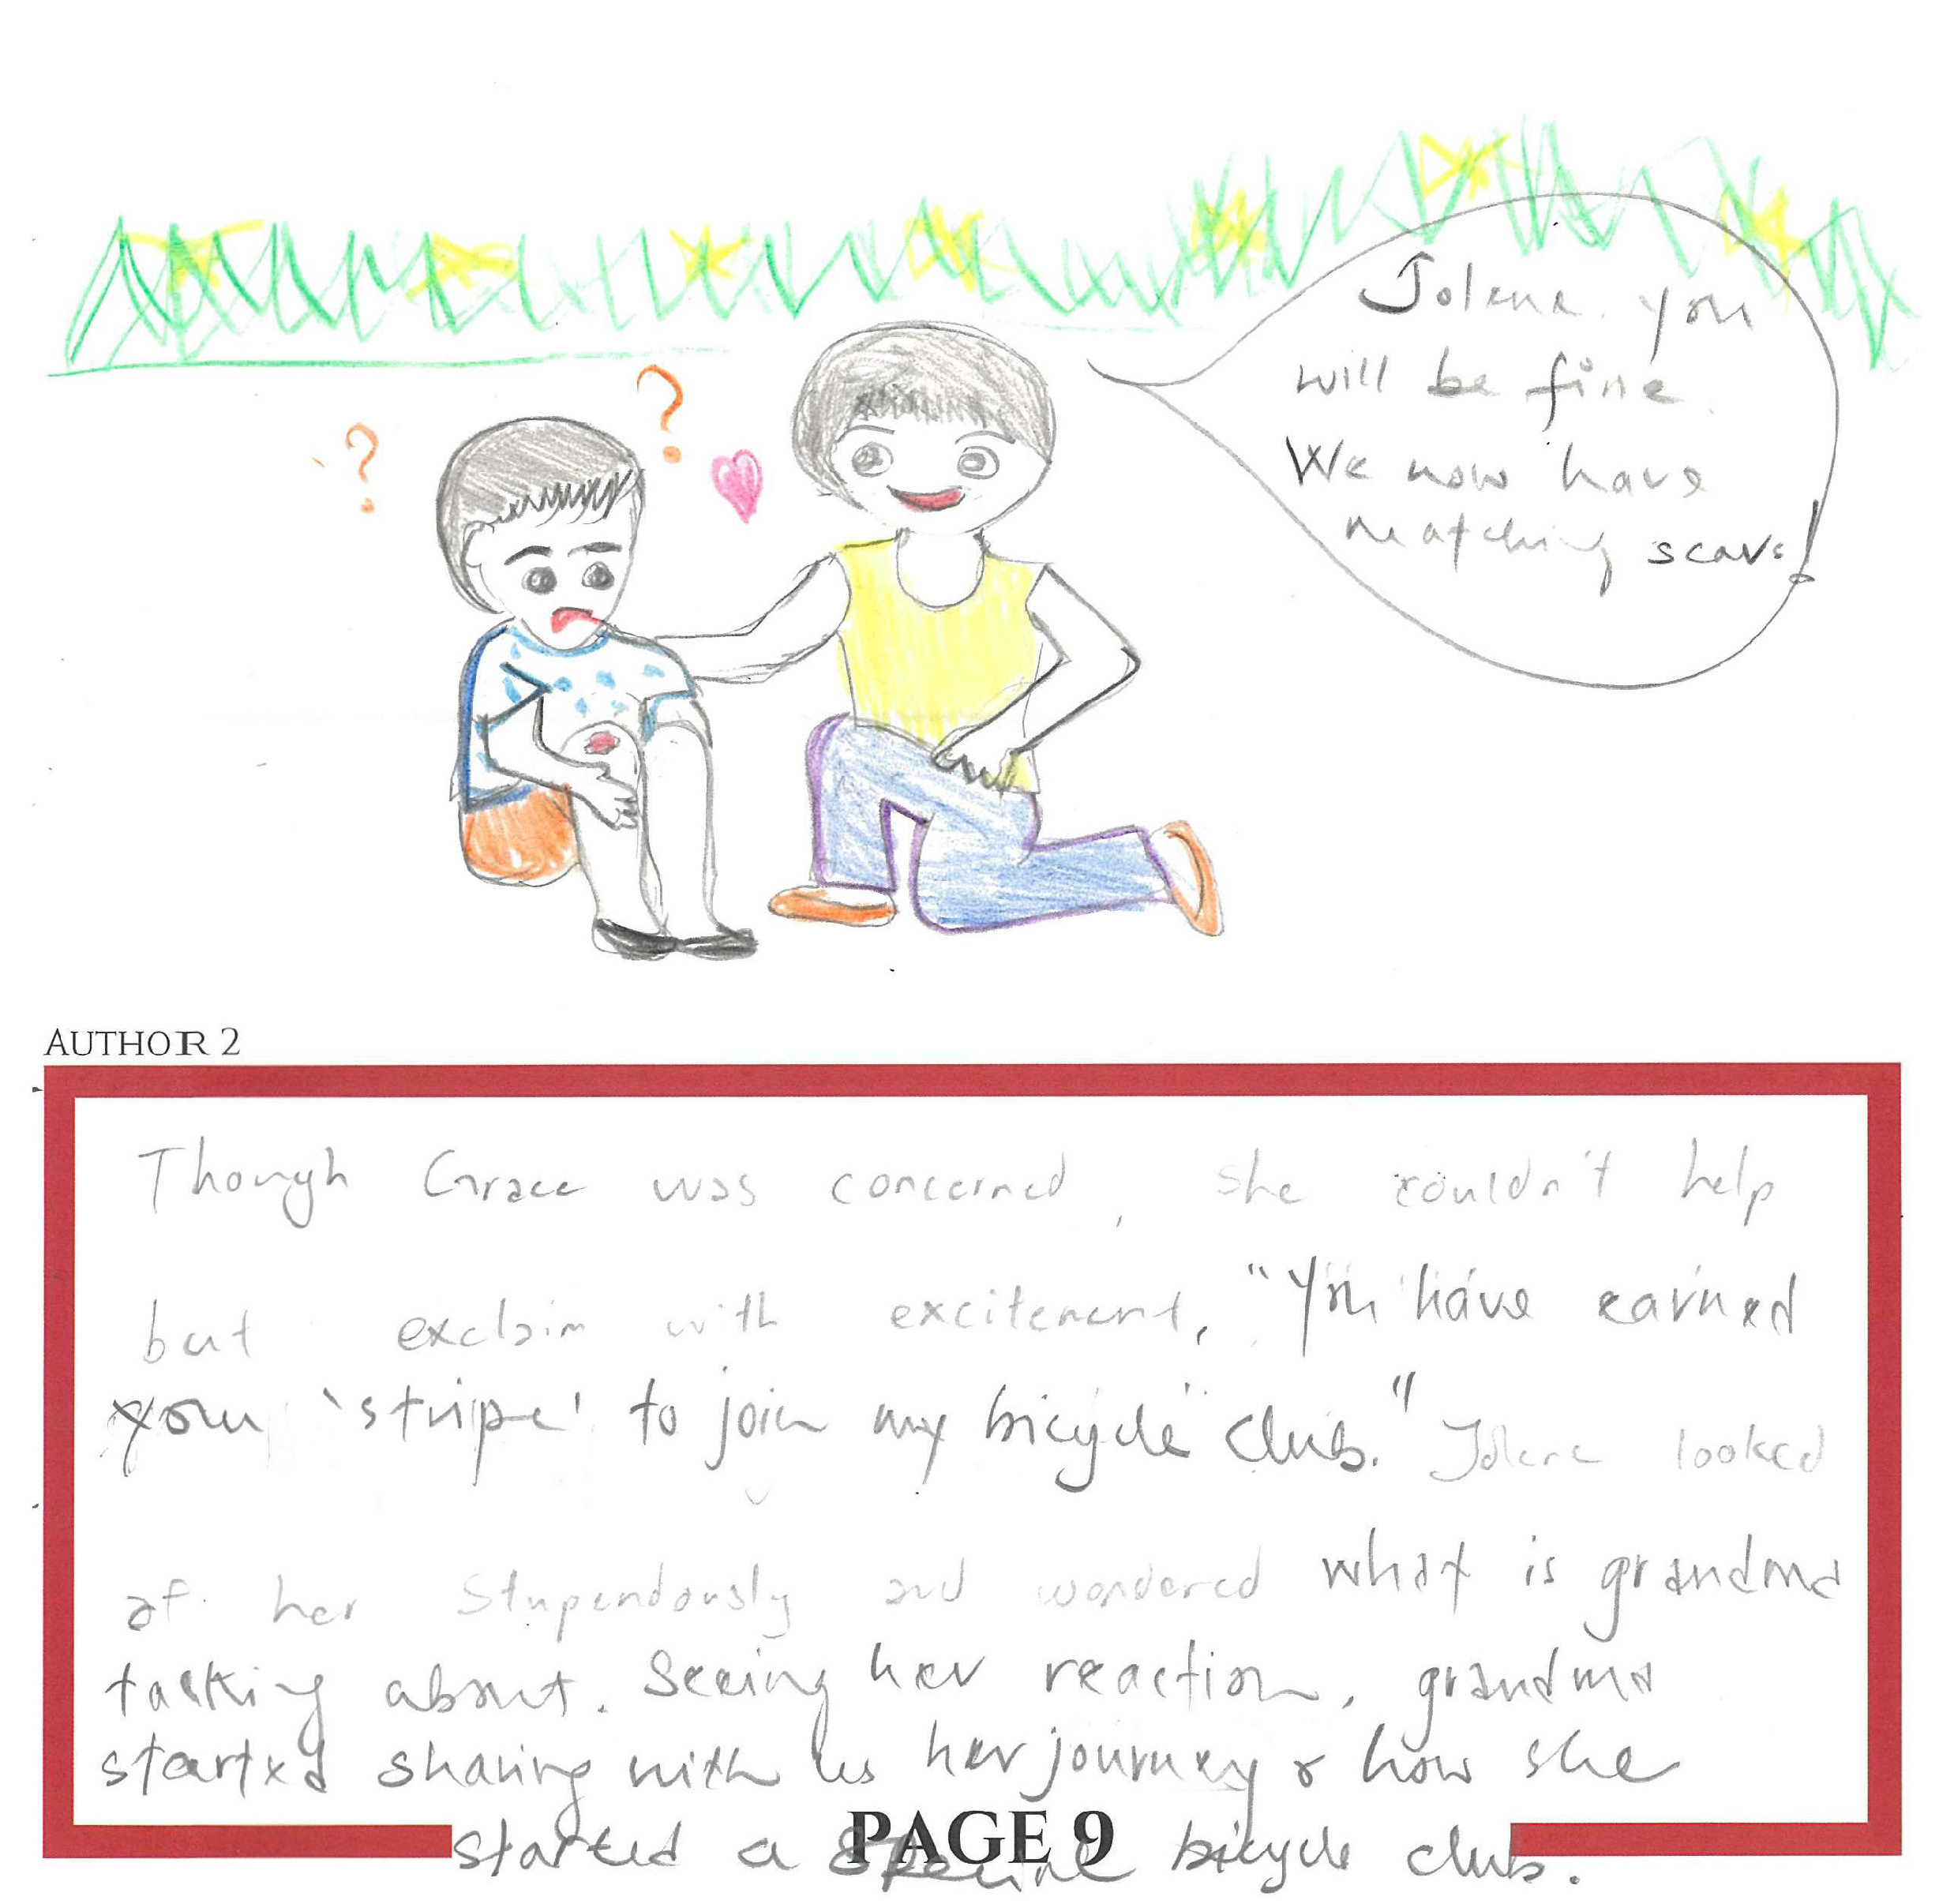 Jolene. you
will be fine.
We now have
matching scars!
? ?
AUTHOR 2
Though Grace was concerned, she couldn't help
but exclaim with excitement, "You have earned
your 'stripe' to join my bicycle club." Jolene looked
at her stupendously and wondered what is grandma
talking about. Seeing her reaction, grandma
started sharing with us her journey & how she
started a special bicycle club.
PAGE 9